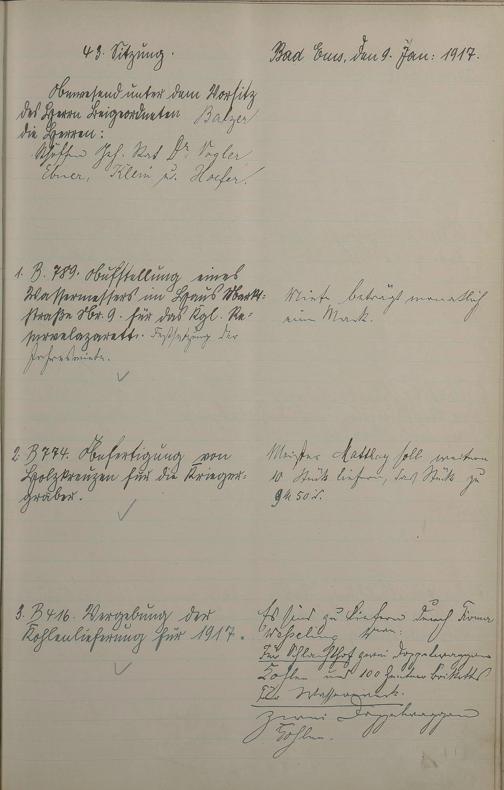 43. Sitzung.
Bad Ems, den 9. Jan: 1917.
Anwesend unter dem Vorsitz
des Herrn Beigeordneten Balzer
die Herren:
Schöffen Geh. Rat Dr. Vogler,
Ebner, Klein u. Hoefer.
1. B. 789. Aufstellung eines
Wassermessers im Haus Markt-
straße Nr. 9. für das Kgl. Re-
servelazarett. Festsetzung der
Jahresmiete.
Miete beträgt monatlich
eine Mark.
2. B 774. Anfertigung von
Holzkreuzen für die Krieger-
gräber.
Meister Mattlay soll weitere
10 Stück liefern, das Stück zu
9 M 50 S.
3. B 416. Vergebung der
Kohlenlieferung für 1917.
Es sind zu liefern durch Firma
von:
Für Schlachthof zwei Doppelwaggon
Kohlen und 100 Zentner Briketts
Für Wasserwerk.
zwei Doppelwaggon
Kohlen.